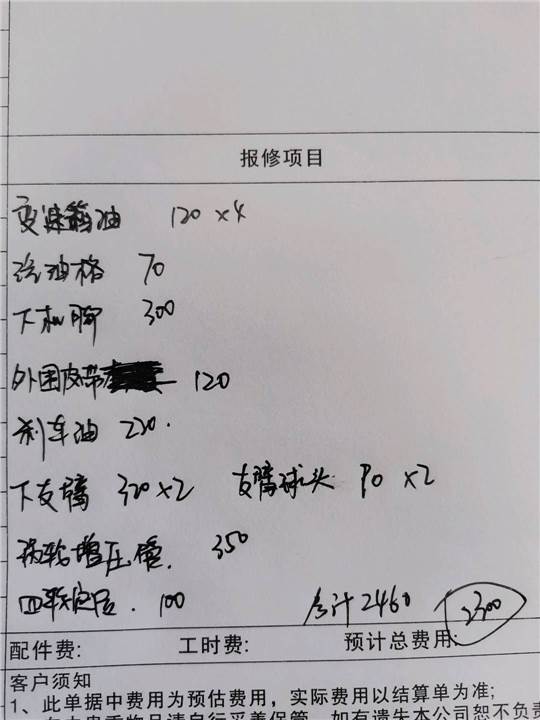 报修项目
变速箱油 120×4
汽油格 70
下机脚 300
外围皮带 120
刹车油 220.
下支臂 320×2 支臂球头 90×2
涡轮增压管. 350
四轮定位. 100
合计2460 2300
配件费: 工时费: 预计总费用:
客户须知
1、此单据中费用为预估费用，实际费用以结算单为准;